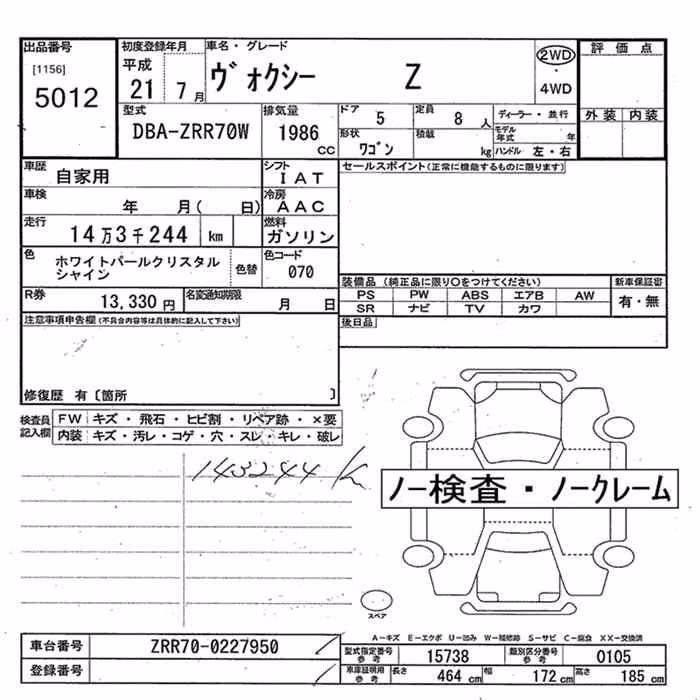 出品番号 初度登録年月 車名・グレード 評価点
[1156] 平成 2WD
5012 21 7月 ヴォクシー Z ・ 4WD
外装 内装
型式 排気量 ドア 5 定員 8人 ディーラー・並行
DBA-ZRR70W 1986 CC 形状 ワゴン 積載 kg モデル年式 年
ハンドル 左・右
車歴 自家用 シフト IAT セールスポイント(正常に機能するものに限ります)
車検 年 月( 日) 冷房 AAC
走行 14万3千244 km 燃料 ガソリン
色 ホワイトパールクリスタルシャイン 色替 色コード 070
装備品 (純正品に限り○をつけてください) 新車保証書
PS PW ABS エアB AW 有・無
SR ナビ TV カワ
R券 13,330円 名変通知期限 月 日
後日品
注意事項申告欄(不具合内容等は具体的に記入して下さい)
修復歴 有〔箇所 〕
検査員記入欄 FW キズ・飛石・ヒビ割・リペア跡・×要
内装 キズ・汚レ・コゲ・穴・スレ・キレ・破レ
143244 k
ノー検査・ノークレーム
スペア
A-キズ E-エクボ U-凹み W-補修跡 S-サビ C-腐食 XX-交換済
車台番号 ZRR70-0227950 型式指定番号参考 15738 類別区分番号参考 0105
登録番号 車庫証明用参考 長さ 464 cm 幅 172 cm 高さ 185 cm